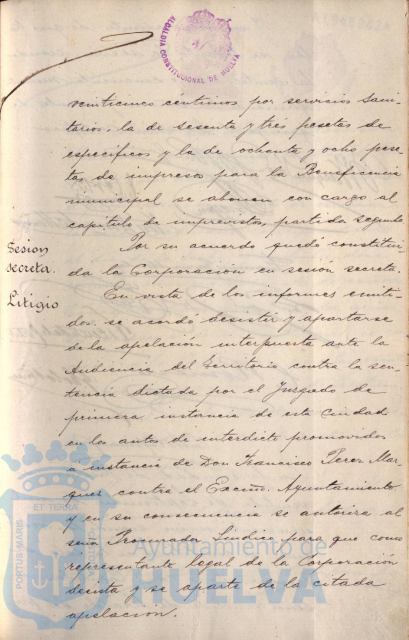 ALCALDIA CONSTITUCIONAL DE HUELVA
veinticinco centimos por servicios sani-
tarios, la de sesenta y tres pesetas de
especificos y la de ochenta y ocho pese-
tas de impresos para la Beneficencia
municipal se abonen con cargo al
capitulo de imprevistos, partida segunda
Sesion
secreta.
Por su acuerdo quedó constitui-
da la Corporación en sesión secreta.
Litigio
En vista de los informes emiti-
dos se acordó desistir y apartarse
de la apelación interpuesta ante la
Audiencia del Territorio contra la sen-
tencia dictada por el Juzgado de
primera instancia de esta Ciudad
en los autos de interdicto promovidos
a instancia de Don Francisco Perez Mar-
quez contra el Excmo. Ayuntamiento
y en su consecuencia se autoriza al
señor Procurador Sindico para que como
representante legal de la Corporación
desista y se aparte de la citada
apelación.
PORTUS MARIS ET TERRÆ
Ayuntamiento de
HUELVA